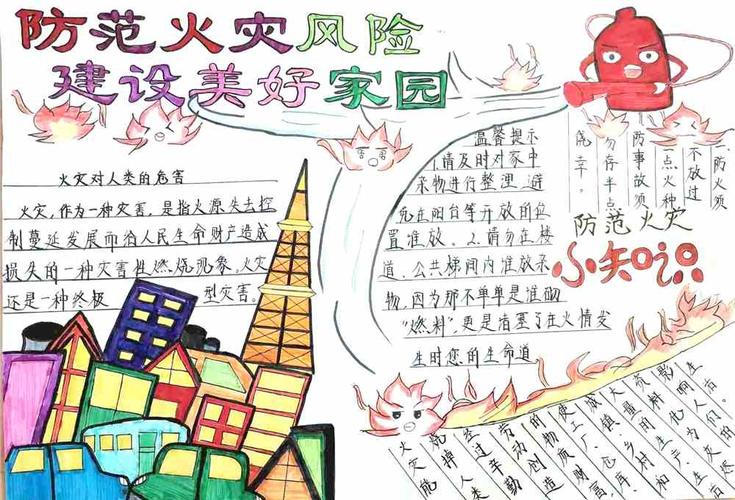 防范火灾风险
建设美好家园
火灾对人类的危害
火灾，作为一种灾害，是指火源失去控
制蔓延发展而给人民生命财产造成
损失的一种灾害性燃烧现象。火灾
还是一种终极 型灾害。
温馨提示
1.请及时对家中
杂物进行整理，避
免在阳台等开放的位
置堆放。2.请勿在楼
道、公共梯间内堆放杂
物，因为那不单单是堆砌
“燃料”，更是堵塞了在火情发
生时您的生命道
一防火须
不放过
一点火种
防事故须
勿存半点
侥幸。
防范火灾
小知识
火灾能
烧掉人类
经过辛勤
劳动创造
的物质财富
使工厂、仓库
城镇、乡村和
大量的生产
资料化为
影响人们的
生活。